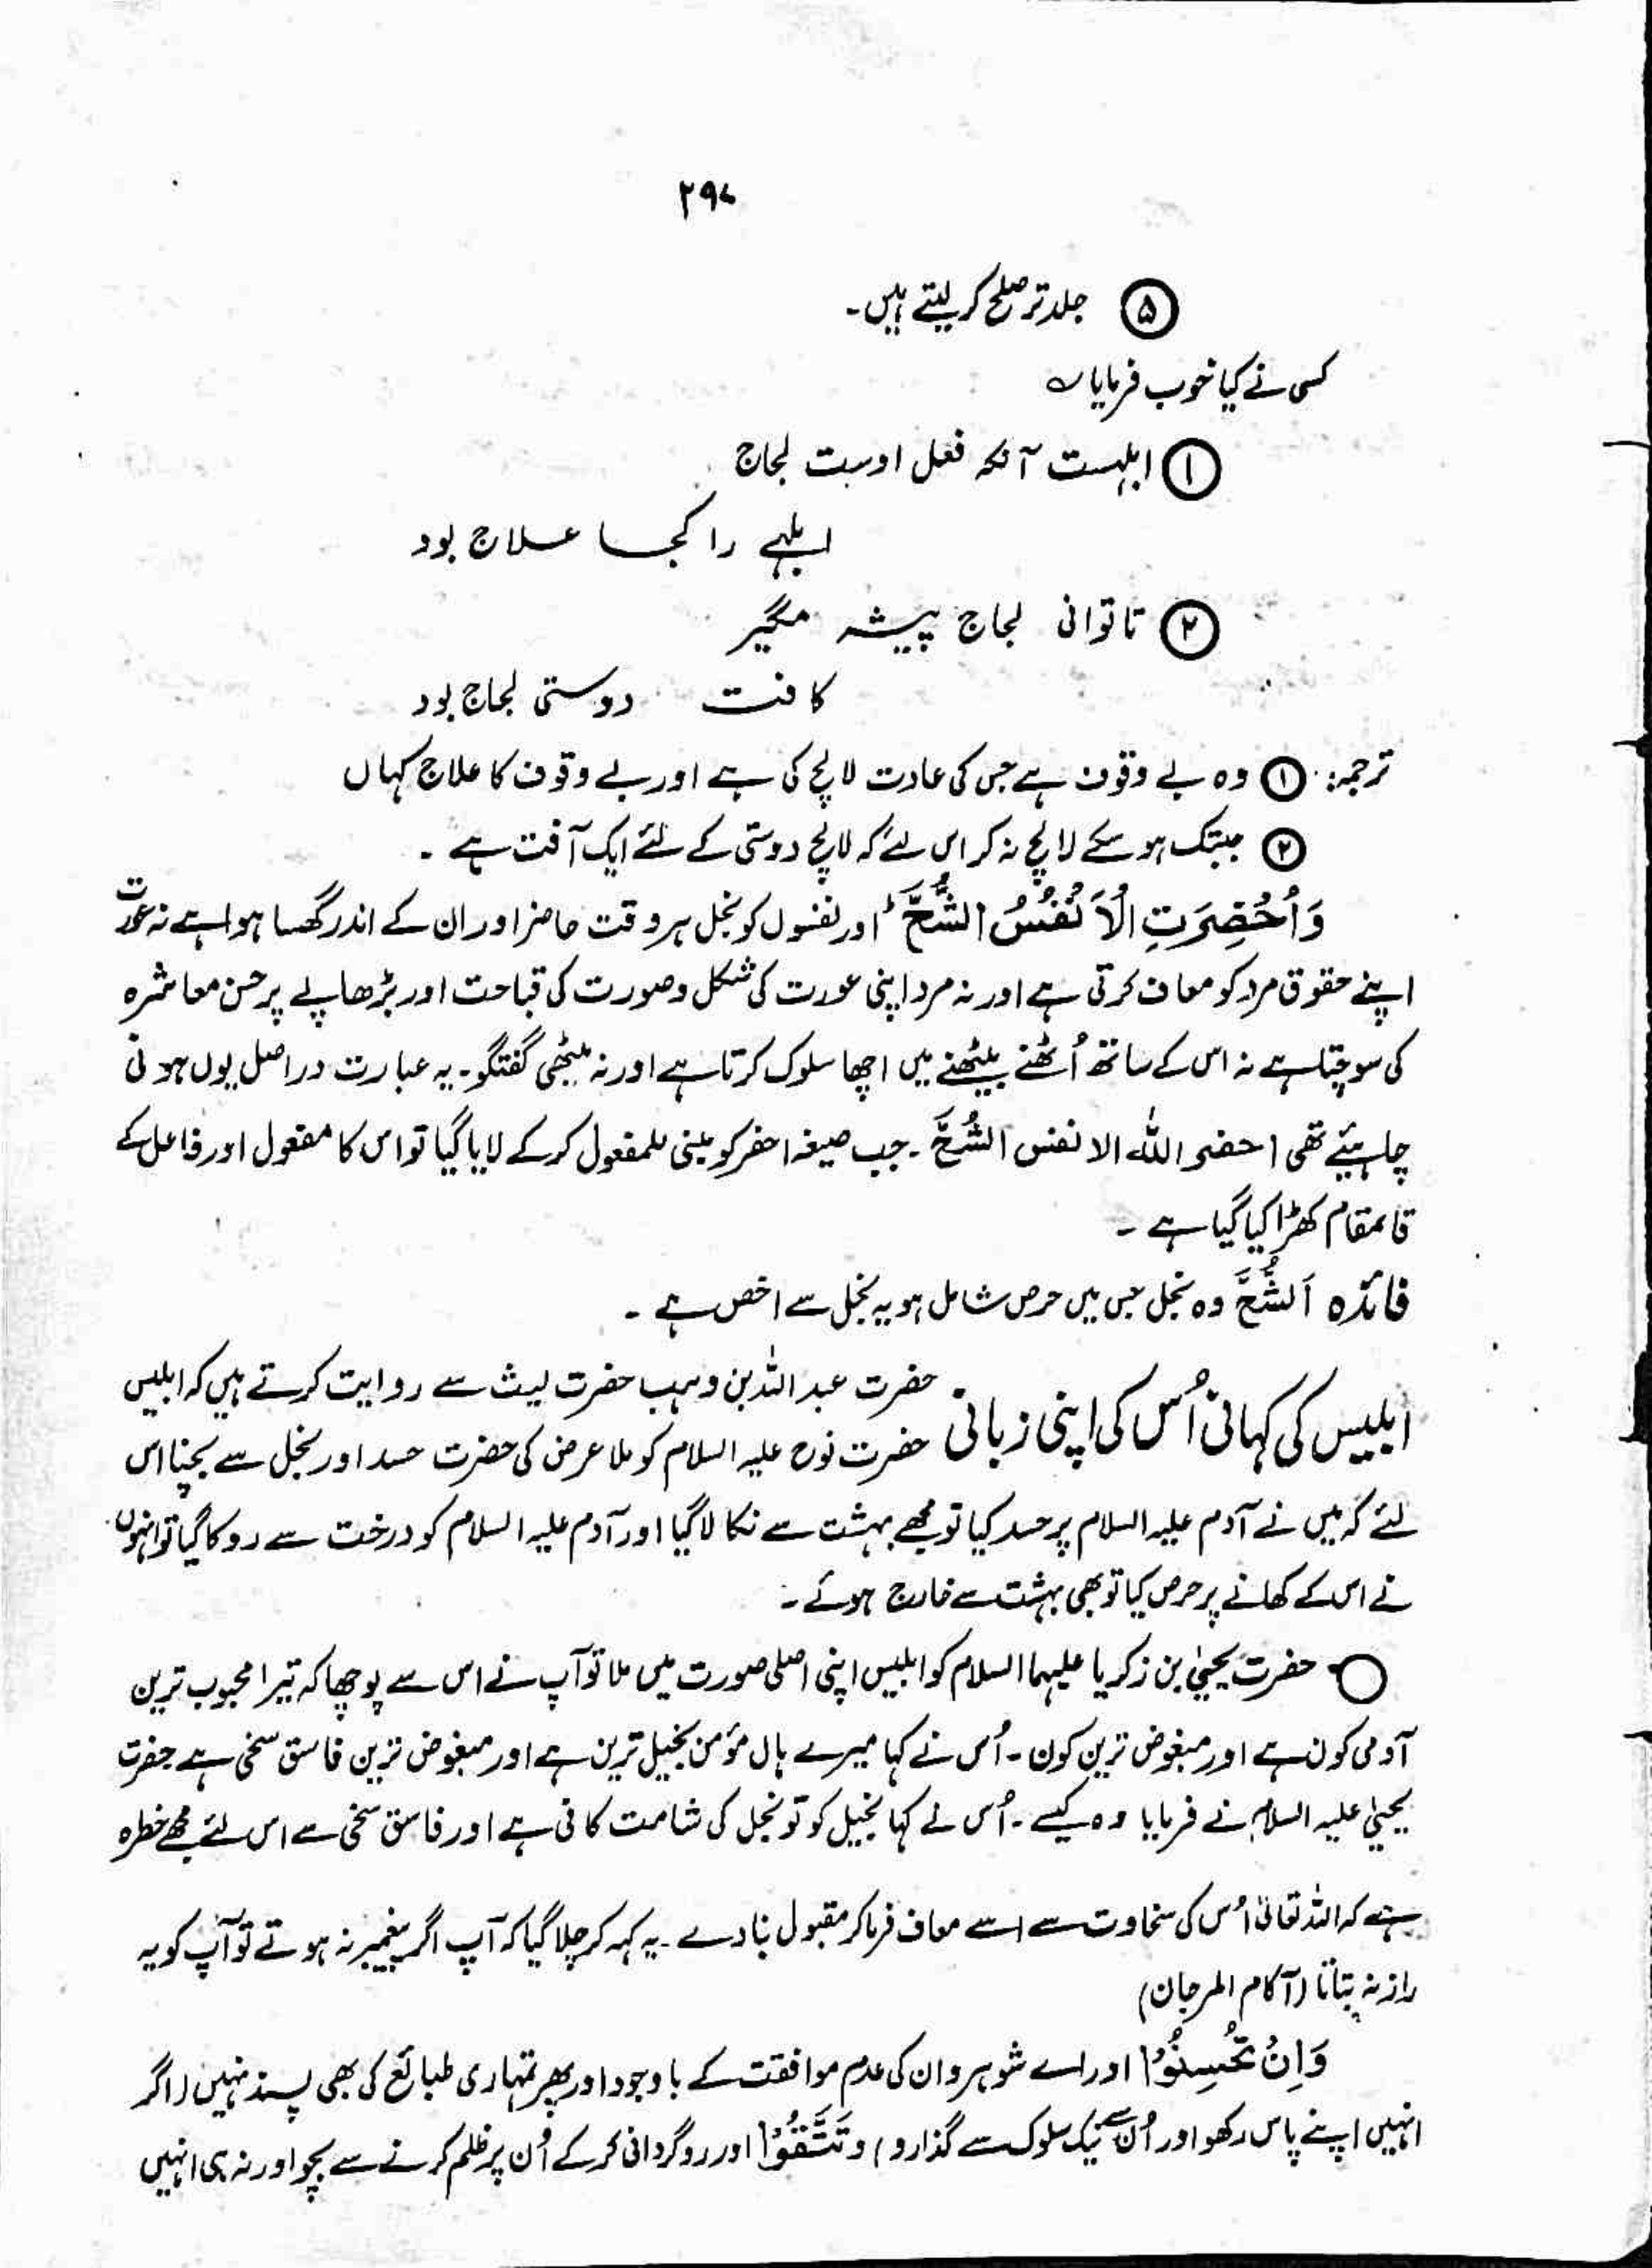 ۲۹۷
۵ جلد تر صلح کر لیتے ہیں۔
کسی نے کیا خوب فرمایا ؎
۱ ابلہست آنکہ فعل اوست لجاج
ابلہے را کجا علاج بود
۲ تا توانی لجاج پیشہ مگیر
کافت دوستی لجاج بود
ترجمہ: ۱ وہ بے وقوف ہے جس کی عادت لالچ کی ہے اور بے وقوف کا علاج کہاں
۲ جبتک ہو سکے لالچ نہ کر اس لئے کہ لالچ دوستی کے لئے ایک آفت ہے ۔
وَاُحْضِرَتِ الْاَنْفُسُ الشُّحَّ ؕ اور نفسوں کو بخل ہر وقت حاضر اور ان کے اندر گھسا ہوا ہے نہ عورت
اپنے حقوق مرد کو معاف کرتی ہے اور نہ مرد اپنی عورت کی شکل و صورت کی قباحت اور بڑھاپے پر حسن معاشرہ
کی سوچتا ہے نہ اس کے ساتھ اُٹھنے بیٹھنے میں اچھا سلوک کرتا ہے اور نہ میٹھی گفتگو۔ یہ عبارت دراصل یوں ہونی
چاہیئے تھی احضر اللہ الانفس الشُّحَّ ۔ جب صیغہ احضر کو مبنی للمفعول کر کے لایا گیا تو اس کا مفعول اور فاعل کے
قائمقام کھڑا کیا گیا ہے ۔
فائدہ اَلشُّحَّ وہ بخل جس میں حرص شامل ہو یہ بخل سے اخص ہے ۔
ابلیس کی کہانی اُس کی اپنی زبانی حضرت عبد اللہ بن وہب حضرت لیث سے روایت کرتے ہیں کہ ابلیس
حضرت نوح علیہ السلام کو ملا عرض کی حضرت حسد اور بخل سے بچنا اس
لئے کہ میں نے آدم علیہ السلام پر حسد کیا تو مجھے بہشت سے نکالا گیا اور آدم علیہ السلام کو درخت سے روکا گیا تو انہوں
نے اس کے کھانے پر حرص کیا تو بھی بہشت سے خارج ہوئے ۔
○ حضرت یحییٰ بن زکریا علیہما السلام کو ابلیس اپنی اصلی صورت میں ملا تو آپ نے اس سے پوچھا کہ تیرا محبوب ترین
آدمی کون ہے اور مبغوض ترین کون ۔ اُس نے کہا میرے ہاں مؤمن بخیل ترین ہے اور مبغوض ترین فاسق سخی ہے حضرت
یحییٰ علیہ السلام نے فرمایا وہ کیسے ۔ اُس نے کہا بخیل کو تو بخل کی شامت کافی ہے اور فاسق سخی سے اس لئے مجھے خطرہ
ہے کہ اللہ تعالیٰ اُس کی سخاوت سے اسے معاف فرما کر مقبول بنا دے ۔ یہ کہہ کر چلا گیا کہ آپ اگر پیغمبر نہ ہوتے تو آپ کو یہ
راز نہ بتاتا (آکام المرجان)
وَاِنْ تُحْسِنُوْا اور اے شوہرو ان کی عدم موافقت کے باوجود اور پھر تمہاری طبائع کی بھی پسند نہیں (اگر
انہیں اپنے پاس رکھو اور اُن سے نیک سلوک سے گذارو) وَتَتَّقُوْا اور روگردانی کر کے اُن پر ظلم کرنے سے بچو اور نہ ہی انہیں